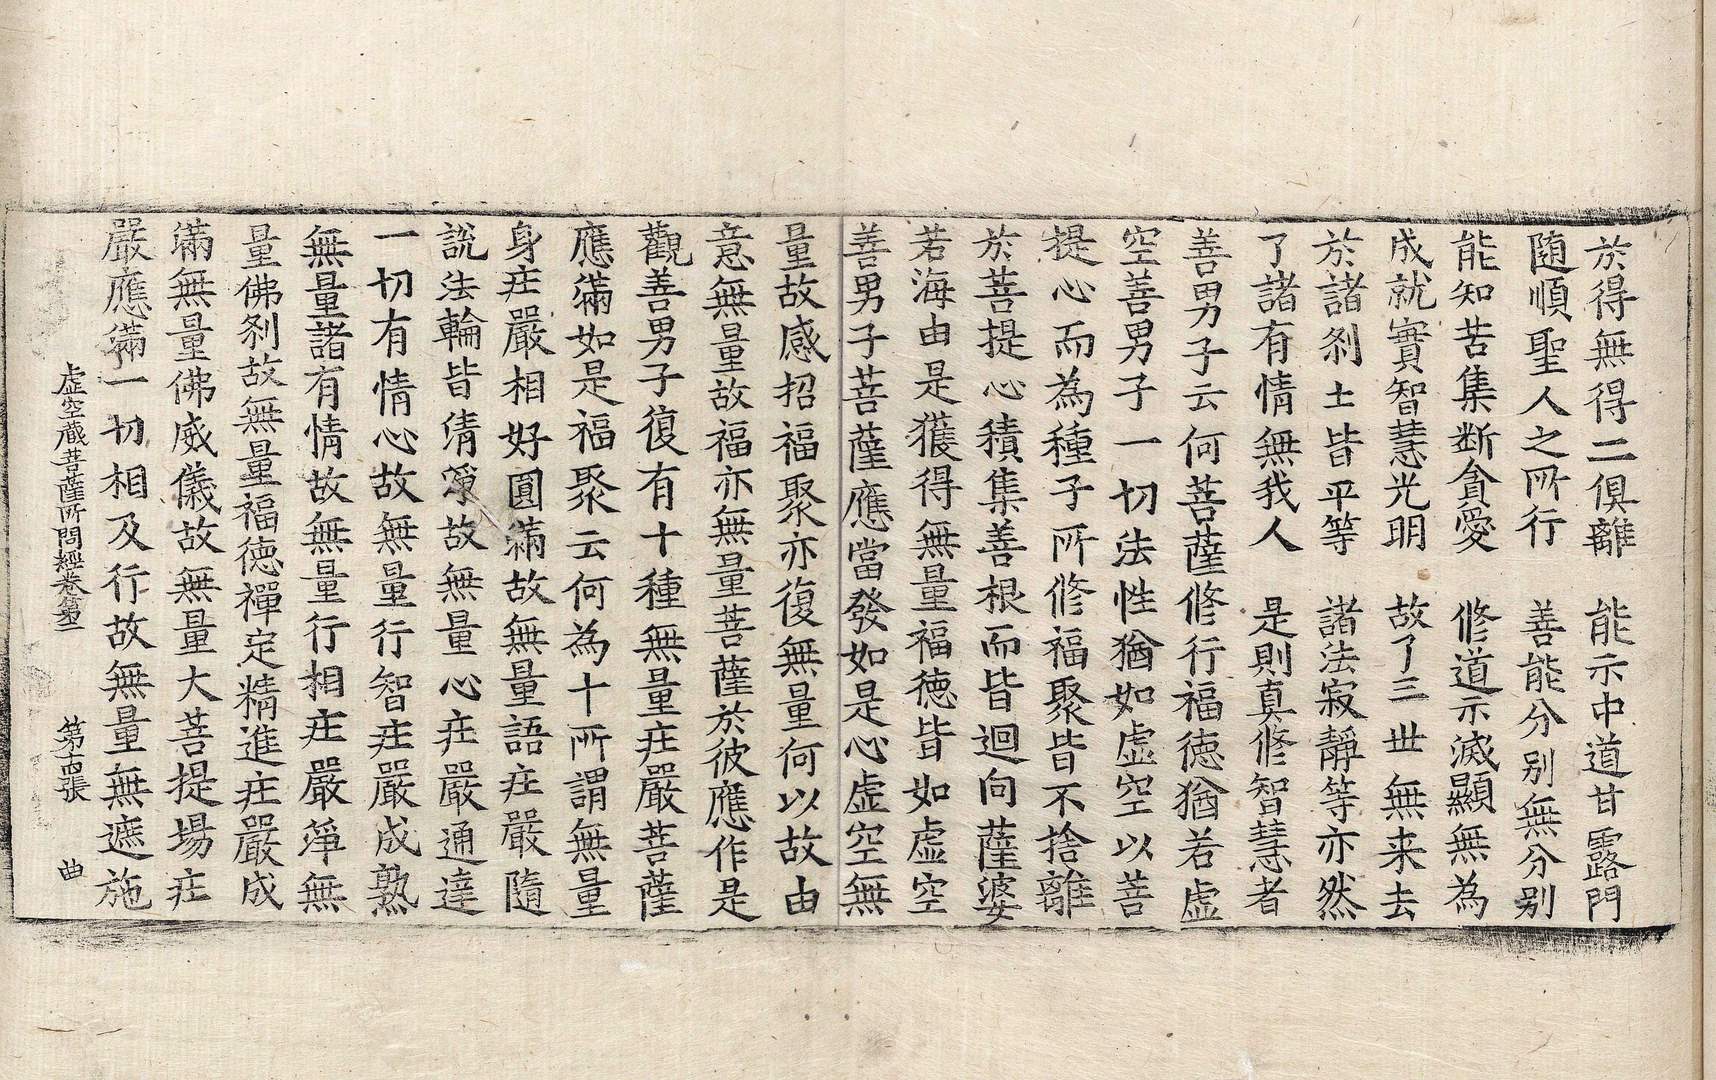 於得無得二俱離　能示中道甘露門
随順聖人之所行　善能分别無分别
能知苦集断貪愛　修道示滅顯無為
成就實智慧光明　故了三世無来去
於諸刹土皆平等　諸法寂静等亦然
了諸有情無我人　是則真修智慧者
善男子云何菩薩修行福徳猶若虛
空善男子一切法性猶如虛空以菩
提心而為種子所修福聚皆不捨離
於菩提心積集善根而皆迴向薩婆
若海由是獲得無量福徳皆如虛空
善男子菩薩應當發如是心虛空無
量故感招福聚亦復無量何以故由
意無量故福亦無量菩薩於彼應作是
觀善男子復有十種無量庄嚴菩薩
應滿如是福聚云何為十所謂無量
身庄嚴相好圓滿故無量語庄嚴隨
說法輪皆清淨故無量心庄嚴通達
一切有情心故無量行智庄嚴成熟
無量諸有情故無量行相庄嚴淨無
量佛刹故無量福徳禪定精進庄嚴成
滿無量佛威儀故無量大菩提場庄
嚴應滿一切相及行故無量無遮施
虛空蔵菩薩所問經卷第二　第十四張　曲